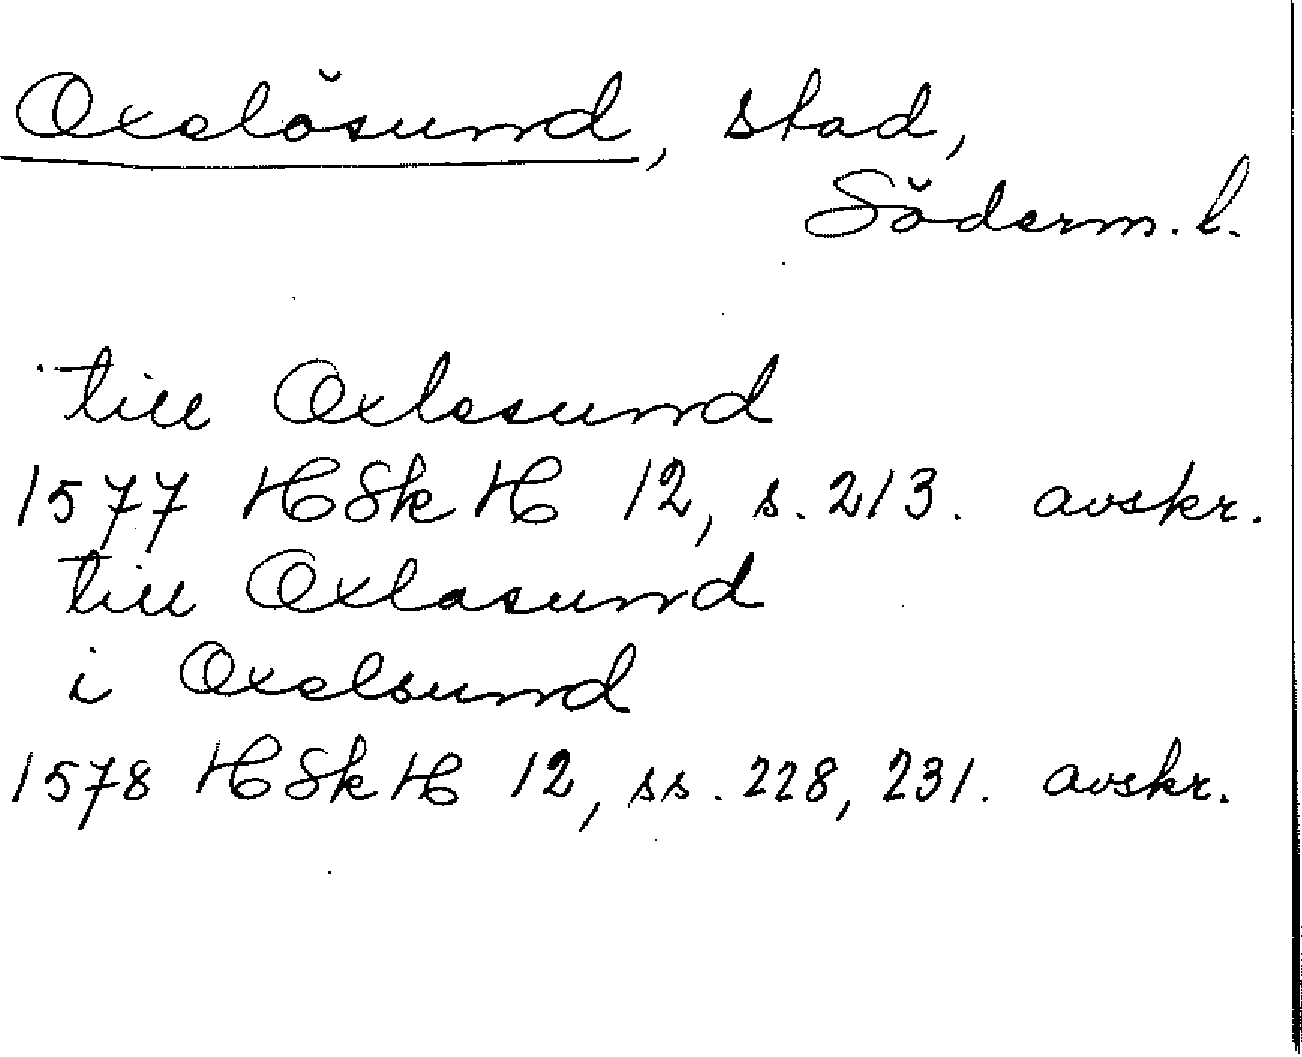 Oxelösund, stad,
Söderm. l.
till Oxlesund
1577 HSkH 12, s. 213. avskr.
till Oxlasund
i Oxelsund
1578 HSkH 12, ss. 228, 231. avskr.